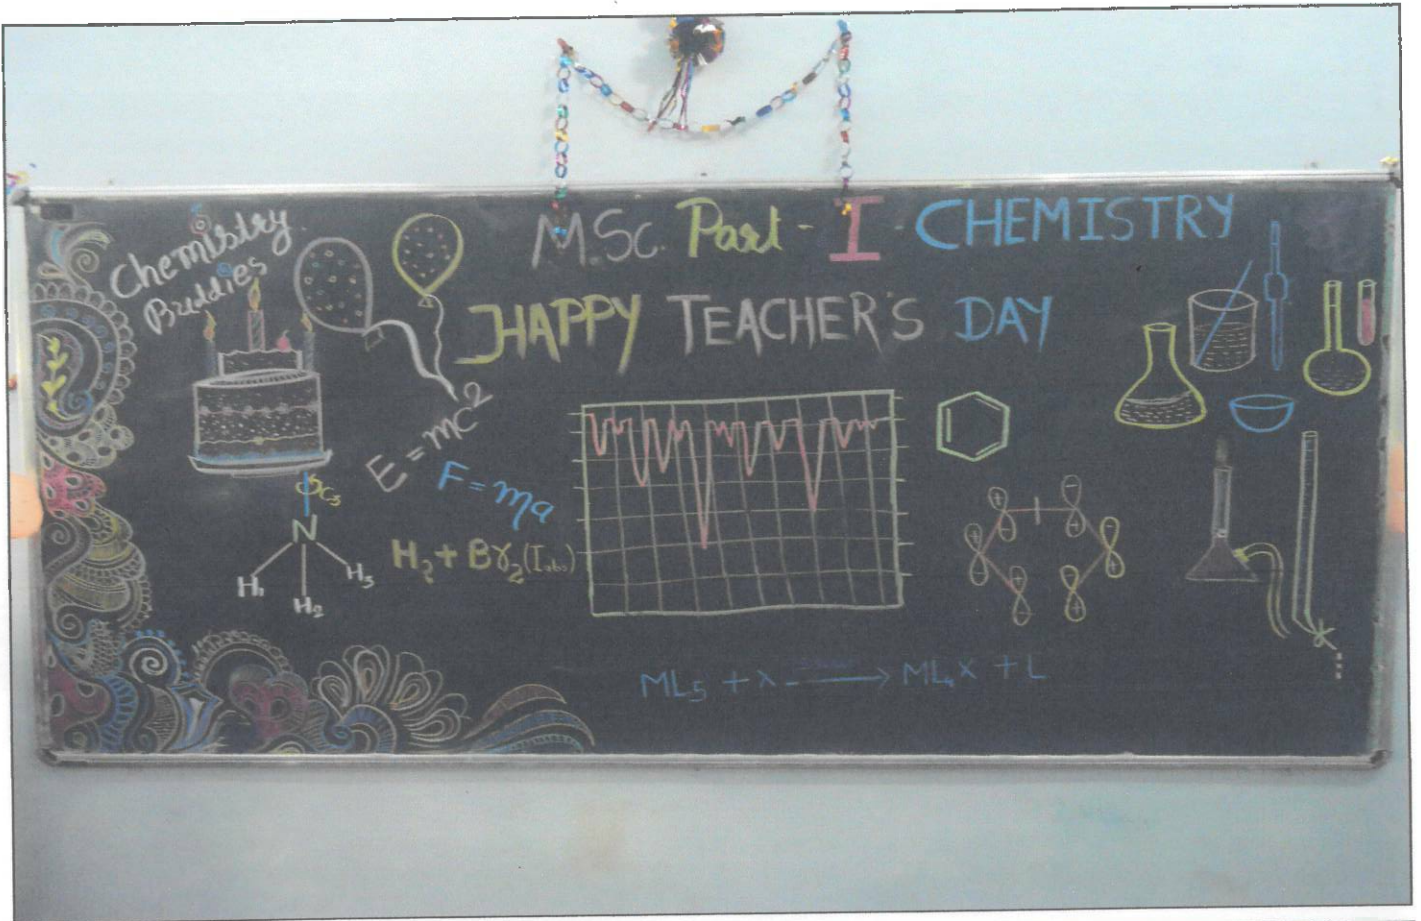 Chemistry
Buddies
M.Sc. Part - I CHEMISTRY
HAPPY TEACHER'S DAY
E = mc²
F = ma
C₃
N
H₁
H₂
H₃
H₂ + Br₂ (I abs)
+ + - - + - + - + - +
ML₅ + X → ML₄X + L